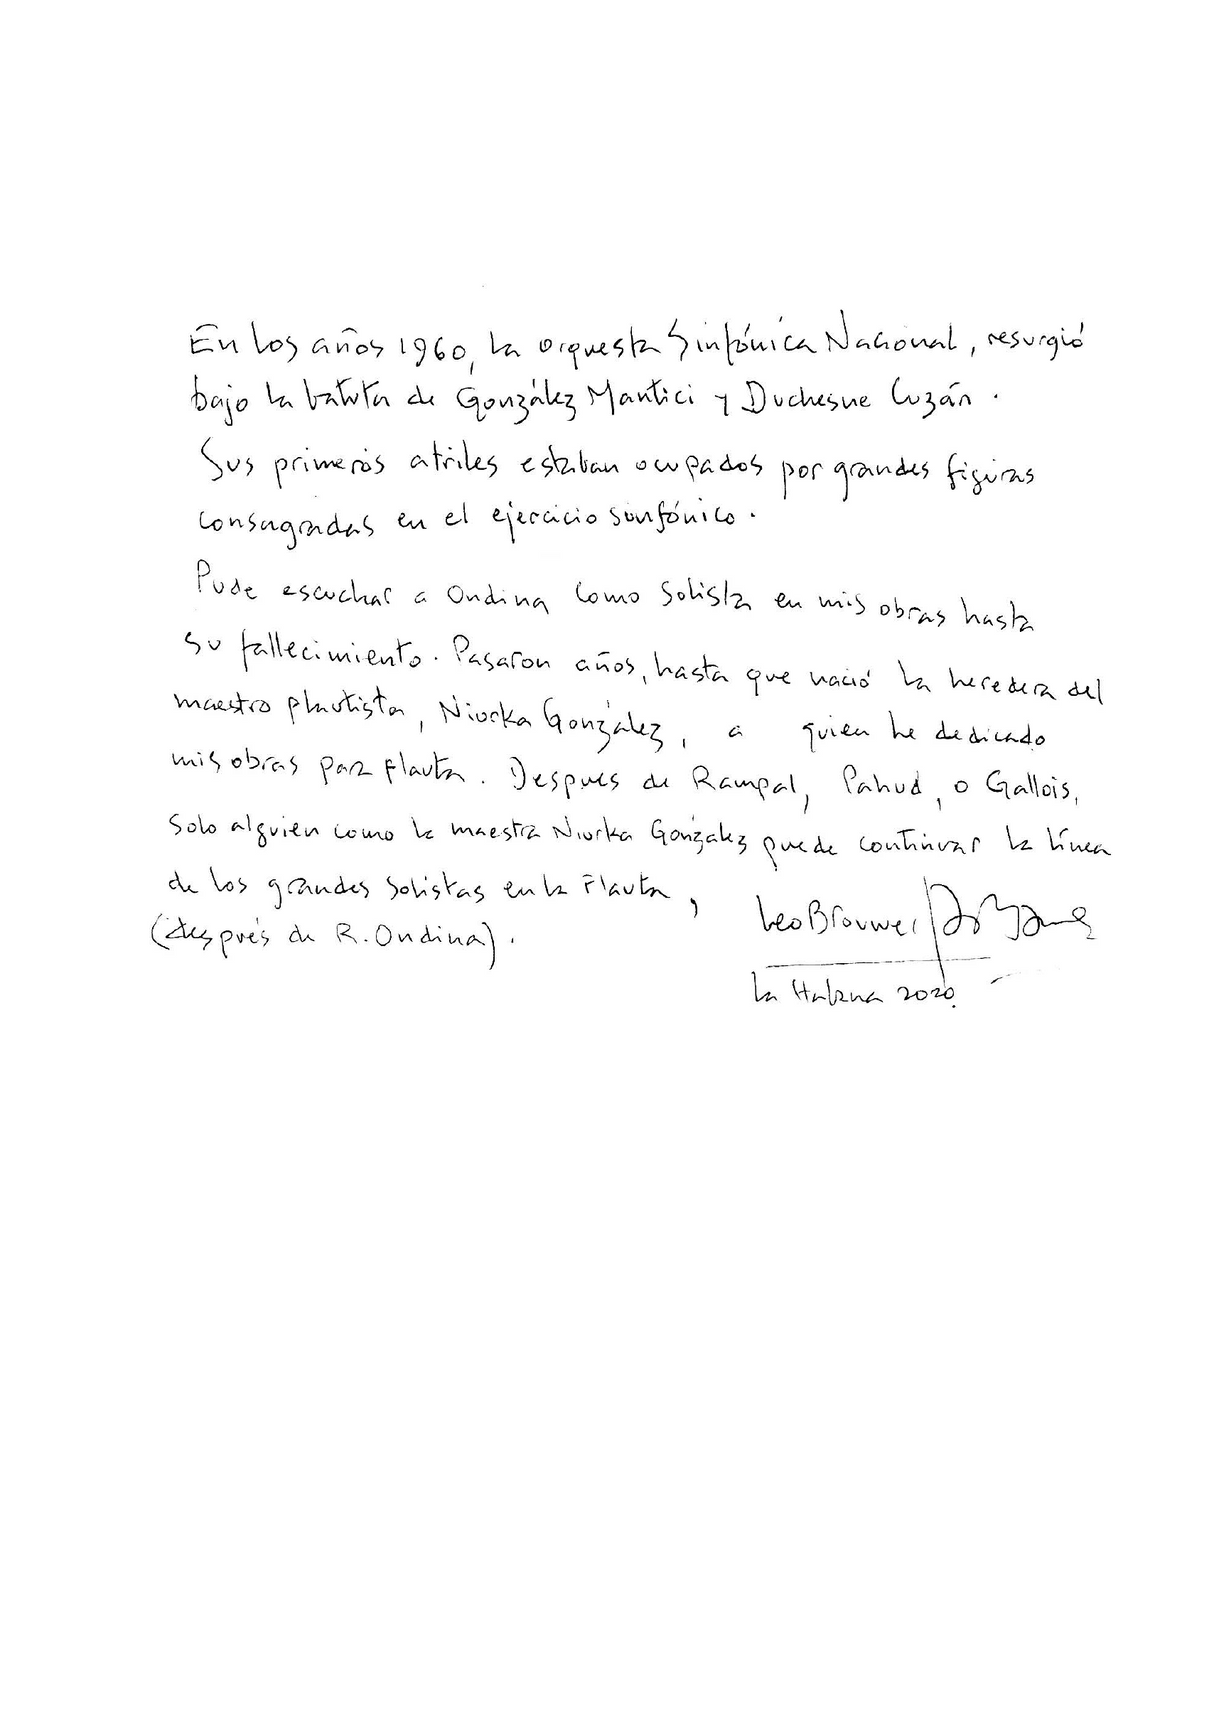 En los años 1960, la orquesta Sinfónica Nacional, resurgió
bajo la batuta de González Mantici y Duchesne Cuzán.
Sus primeros atriles estaban ocupados por grandes figuras
consagradas en el ejercicio sinfónico.
Pude escuchar a Ondina como solista en mis obras hasta
su fallecimiento. Pasaron años, hasta que nació la heredera del
maestro flautista, Niurka González, a quien he dedicado
mis obras para flauta. Despues de Rampal, Pahud, o Gallois,
solo alguien como la maestra Niurka González puede continuar la línea
de los grandes solistas en la Flauta,
(después de R. Ondina).
Leo Brouwer
La Habana 2020.